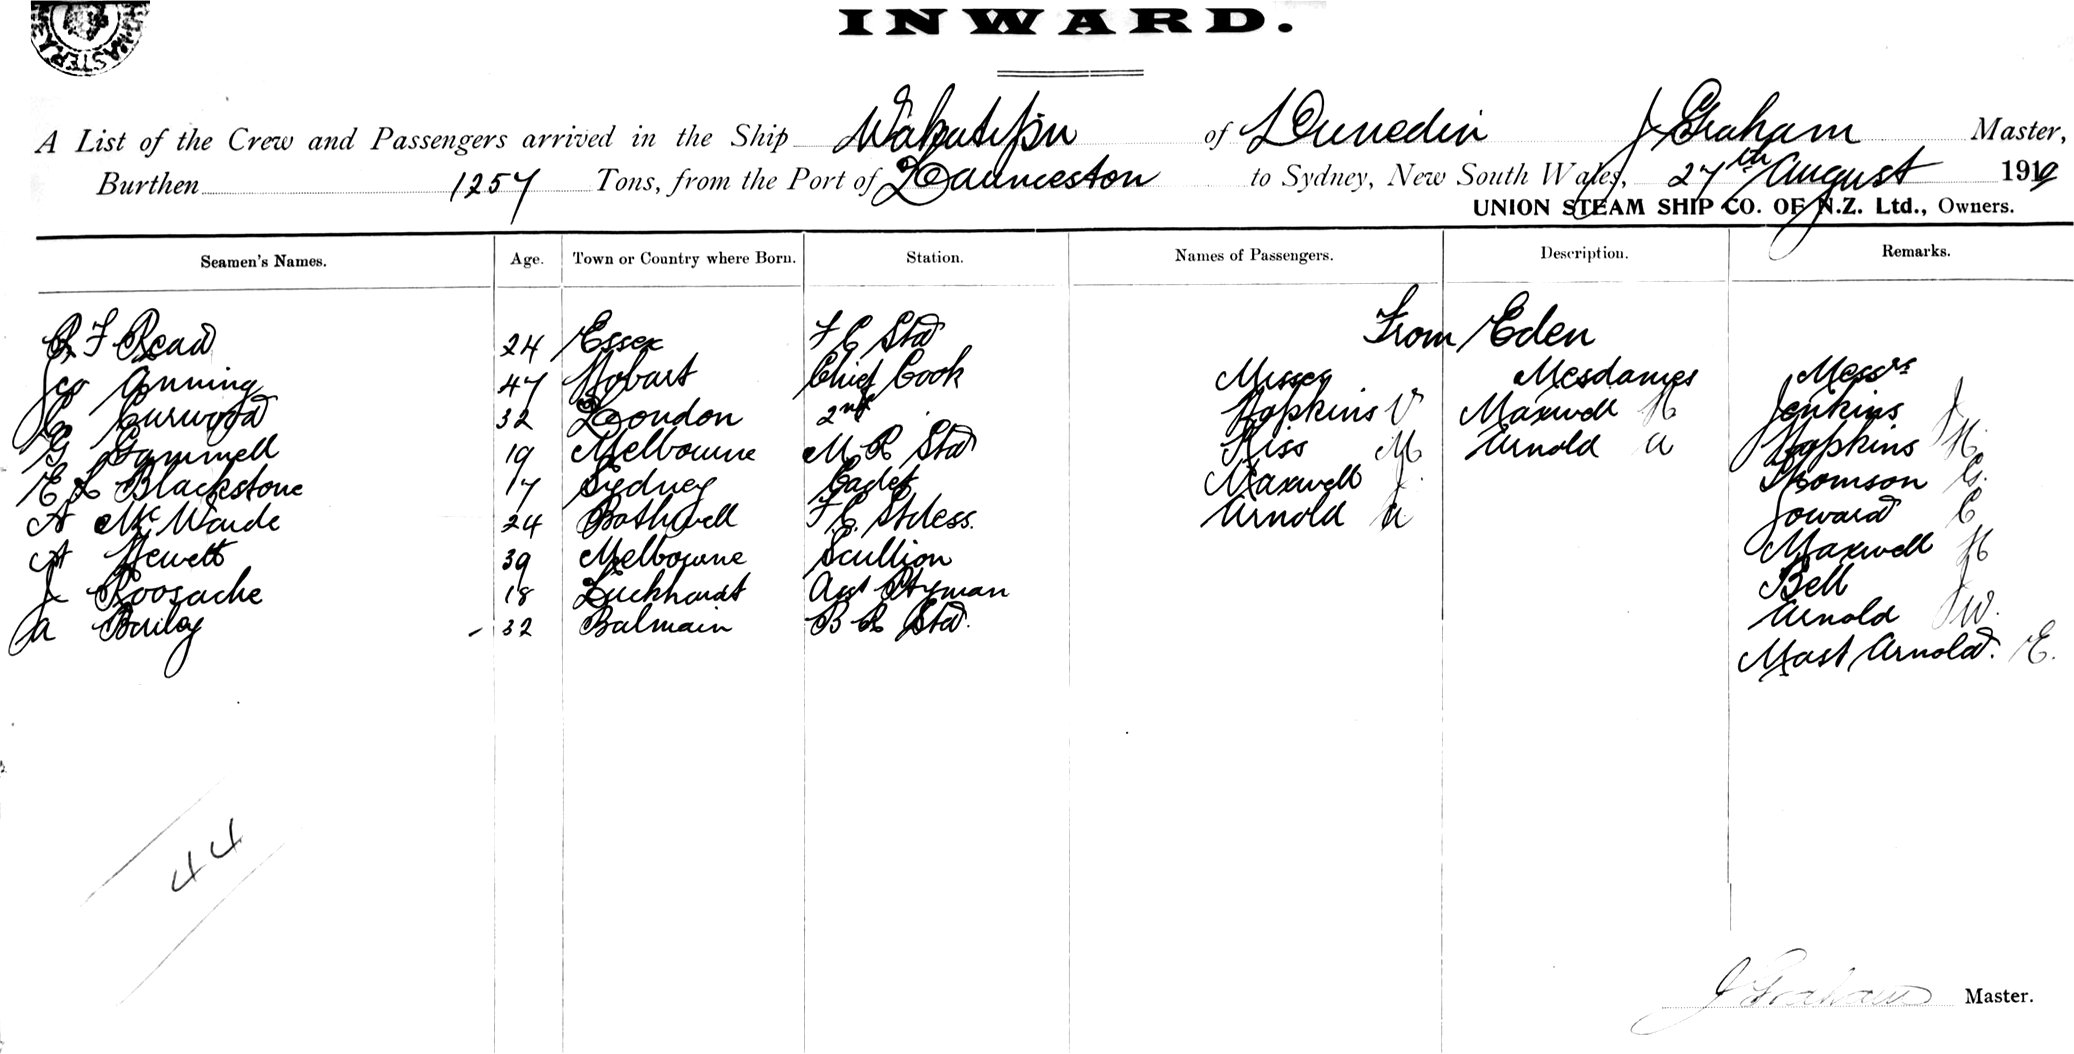 INWARD.
A List of the Crew and Passengers arrived in the Ship Wakatipu of Dunedin J Graham Master,
Burthen 1257 Tons, from the Port of Launceston to Sydney, New South Wales, 27th August 1919
UNION STEAM SHIP CO. OF N.Z. Ltd., Owners.
Seamen's Names. Age. Town or Country where Born. Station. Names of Passengers. Description. Remarks.
From Eden
F Read 24 Essex F C Std
Geo Anning 47 Hobart Chief Cook Misses Mesdames Messrs
C Curwood 32 London 2nd Hopkins V Maxwell H Jenkins J
G Gammell 19 Melbourne M R Std Kiss M Arnold A Hopkins H.
E L Blackstone 17 Sydney Cadet Maxwell J. Thomson G.
A McWade 24 Bothwell F.C. Stdess. Arnold A Howard C
A Hewett 39 Melbourne Scullion Maxwell H
J 18 Asst Ptyman Bell J
A Bailey - 32 Balmain B R Std. Arnold W.
Mast Arnold. E.
44
J Graham Master.